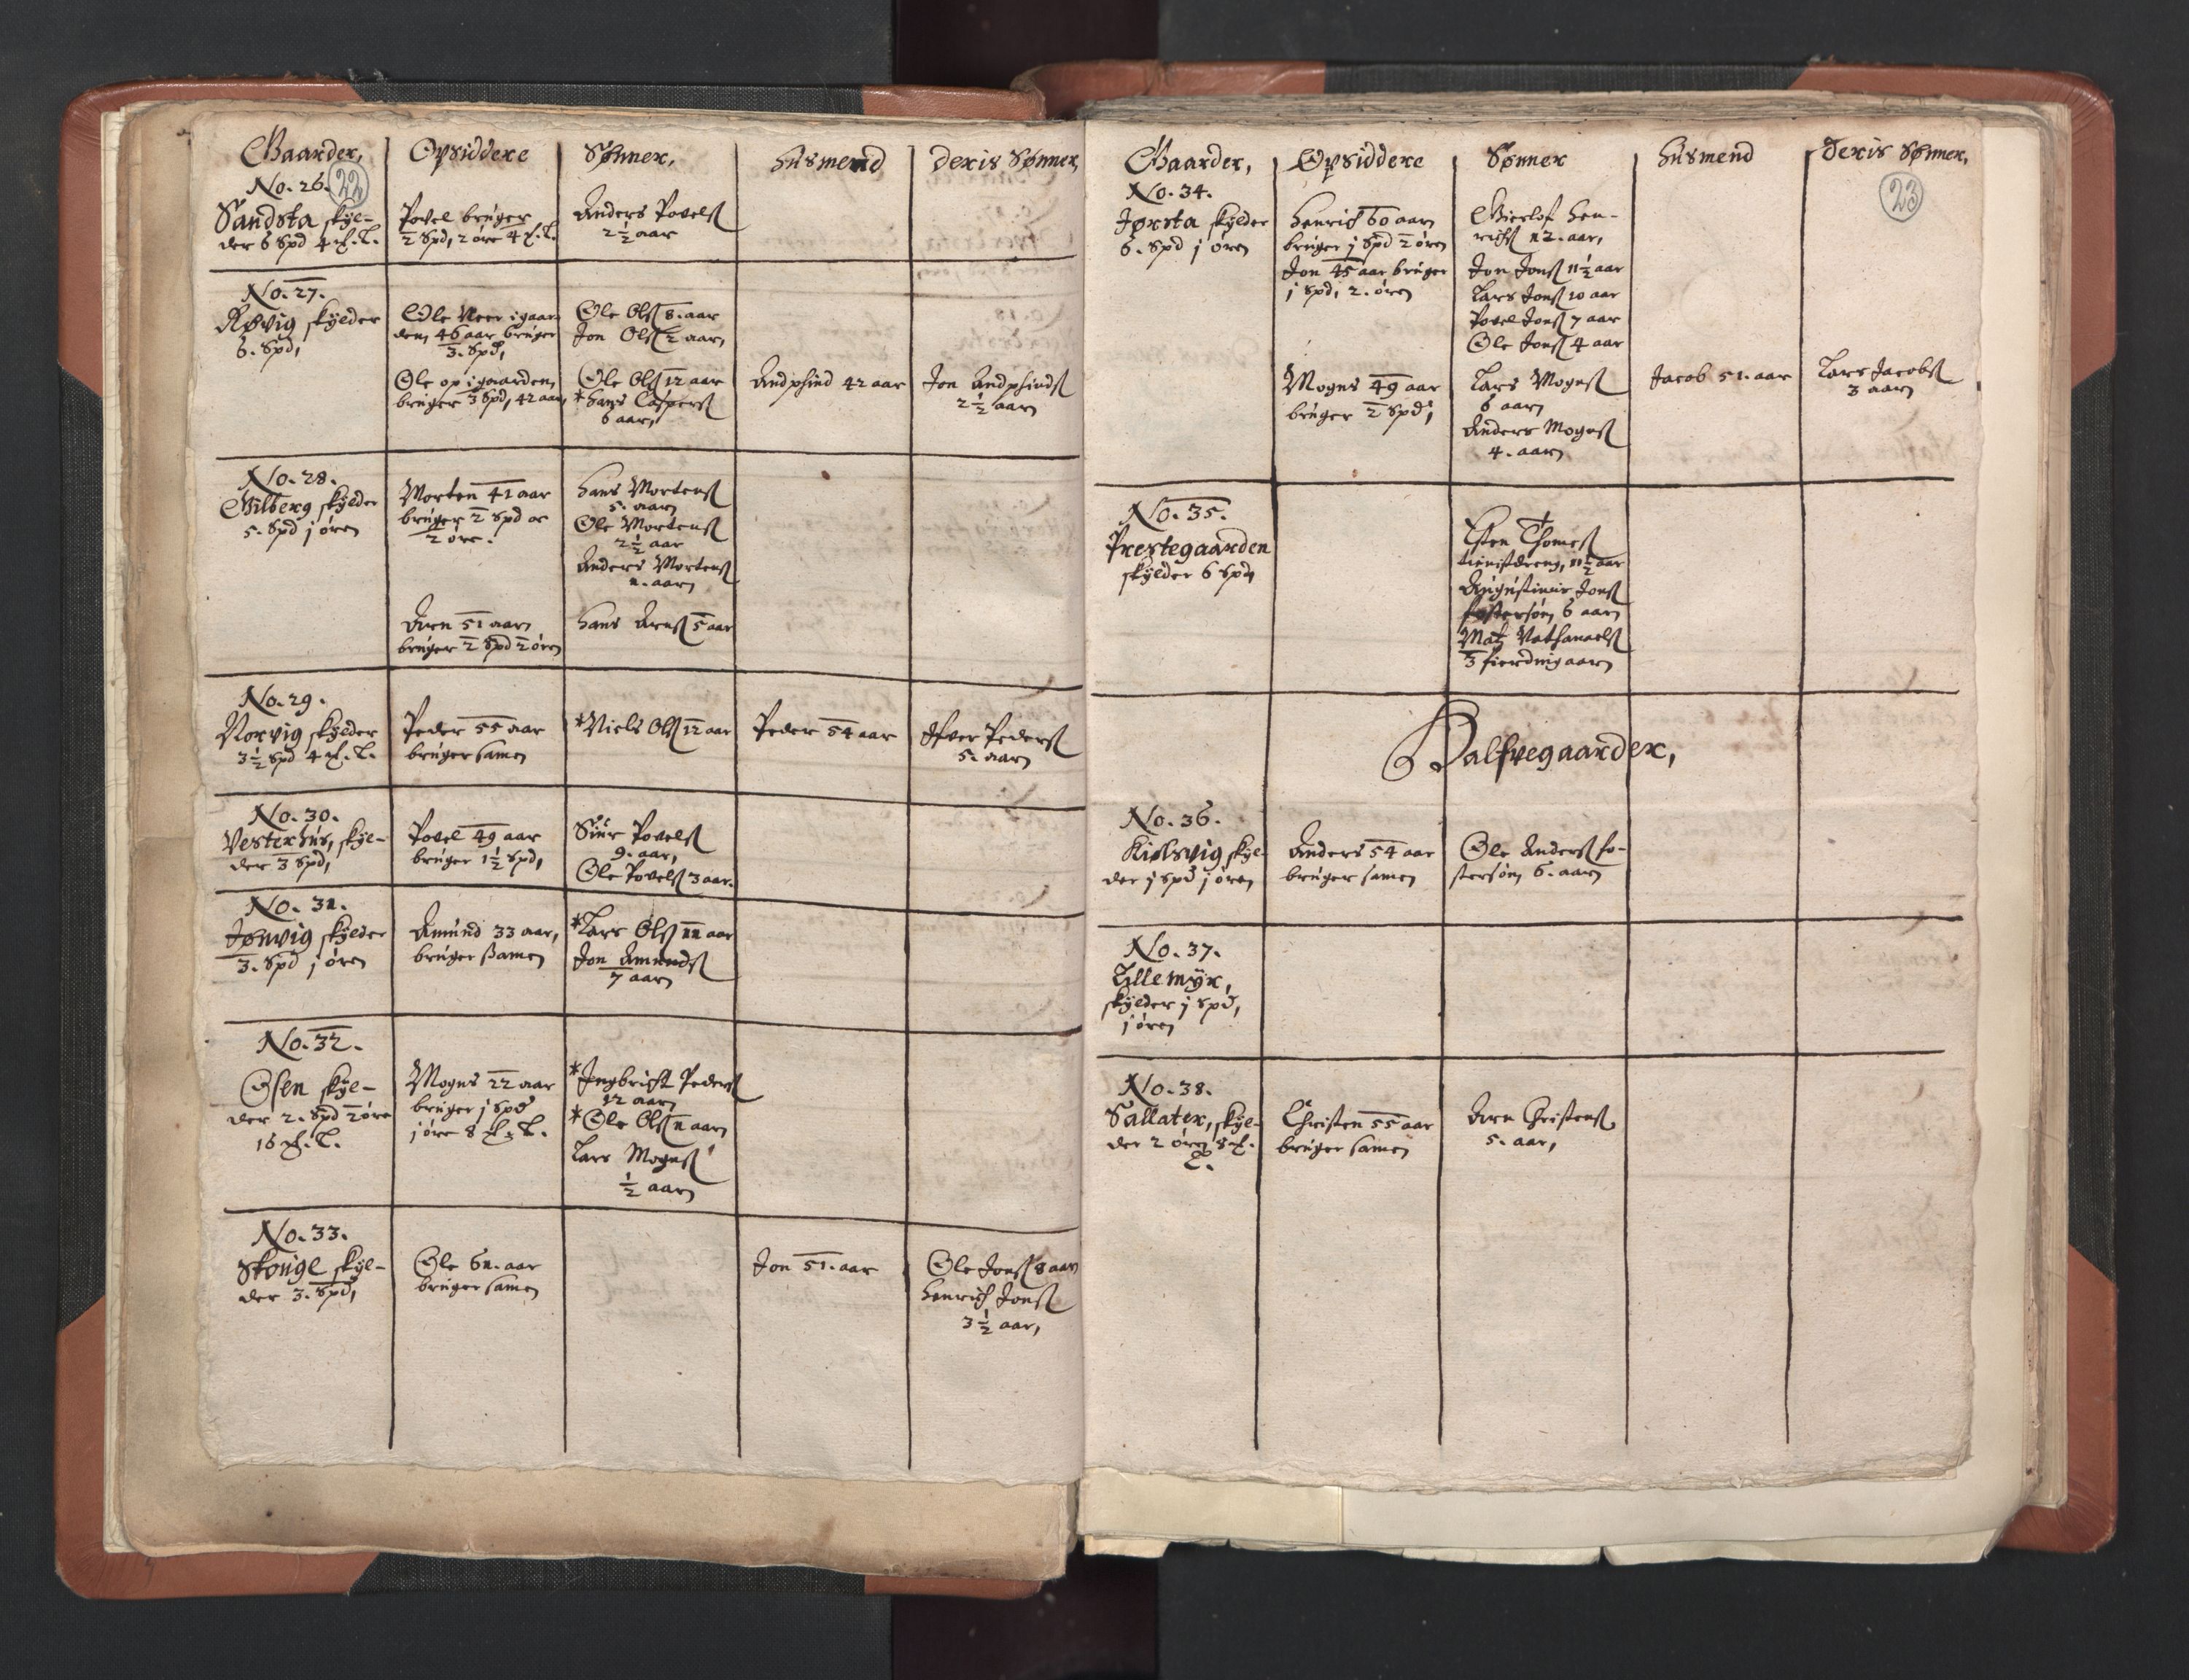 Gaarder, Opsiddere Sønner, Husmend Deris Sønner,
No. 26. 22
Sandsta skyl-
der 6 Spd 4 ℔. L.
Povel bruger
½ Spd, 2 øre 4 ℔. L.
Anders Povelß
2½ aar
No. 27.
Røvig skylder
6. Spd,
Ole Neer i gaar-
den, 46 aar bruger
3. Spd,
Ole Olß 8. aar
Jon Olß ½ aar,
Ole op i gaarden,
bruger 3 Spd, 42 aar,
Ole Olß 12 aar
* Hans Caspersß
6 aar,
Andphind 42 aar
Jon Andphindß
2½ aar
No. 28.
Gilberg skylder
5. Spd j ører
Morten 41 aar
bruger 2 Spd oc
2 øre.
Hans Mortenß
5. aar
Ole Mortenß
2½ aar
Anders Mortenß
1. aar
Arn 51 aar
bruger 2 Spd 2 ører
Hans Arnß 5 aar
No. 29.
Norvig skylder
3½ Spd 4 ℔. L.
Peder 55 aar
bruger samen
* Niels Olß 12 aar
Peder 54 aar
Ifver Pederß
5. aar
No. 30.
Vesterhus, skyl-
der 3 Spd,
Povel 49 aar
bruger 1½ Spd,
Siur Povelß
9. aar,
Ole Povelß 3 aar.
No. 31.
Jønvig skylder
3. Spd j ører
Amund 33 aar,
bruger samen
* Lars Olß 11 aar
Jon Amundß
7 aar
No. 32.
Osen skyl-
der 2. Spd 2 øre
16 ℔. L.
Mogns 22 aar
bruger j Spd
j øre 8 ℔. L.
* Ingbricht Pederß
12 aar
* Ole Olß 11 aar
Lars Mognß
½ aar
No. 33.
Skonge skyl-
der 3. Spd,
Ole 61. aar
bruger samen
Jon 51. aar
Ole Jonß 8 aar
Henrich Jonß
3½ aar,
Gaarder, Opsiddere Sønner Husmend Deris Sønner,
No. 34. 23
Jørsta skylder
6. Spd j ører
Henrich 60 aar
bruger j Spd 2 ører
Jon 45 aar bruger
j Spd, 2. ører
Gierlof Hen-
richß 12. aar,
Jon Jonß 11½ aar
Lars Jonß 10 aar
Povel Jonß 7 aar
Ole Jonß 4 aar
Mogns 49 aar
bruger 2 Spd,
Lars Mognß
6 aar
Anders Mognß
4. aar
Jacob 51. aar
Lars Jacobß
3 aar
No. 35.
Prestegaarden
skylder 6 Spd
Esten Thomesß
tienistdreng, 11½ aar
Augustinus Jonß
fostersøn, 6 aar
Matz Nathanaelß
3 fierding aar
Halfvegaarder,
No. 36.
Kiølsvig skyl-
der j Spd j ører
Anders 54 aar
bruger samen
Ole Anderß fo-
stersøn, 6. aar
No. 37.
Lillemyr,
skylder j Spd,
j ører
No. 38.
Sallater, skyl-
der 2 ører 8 ℔.
L.
Christen 55 aar
bruger samen
Arn Christenß
5. aar,